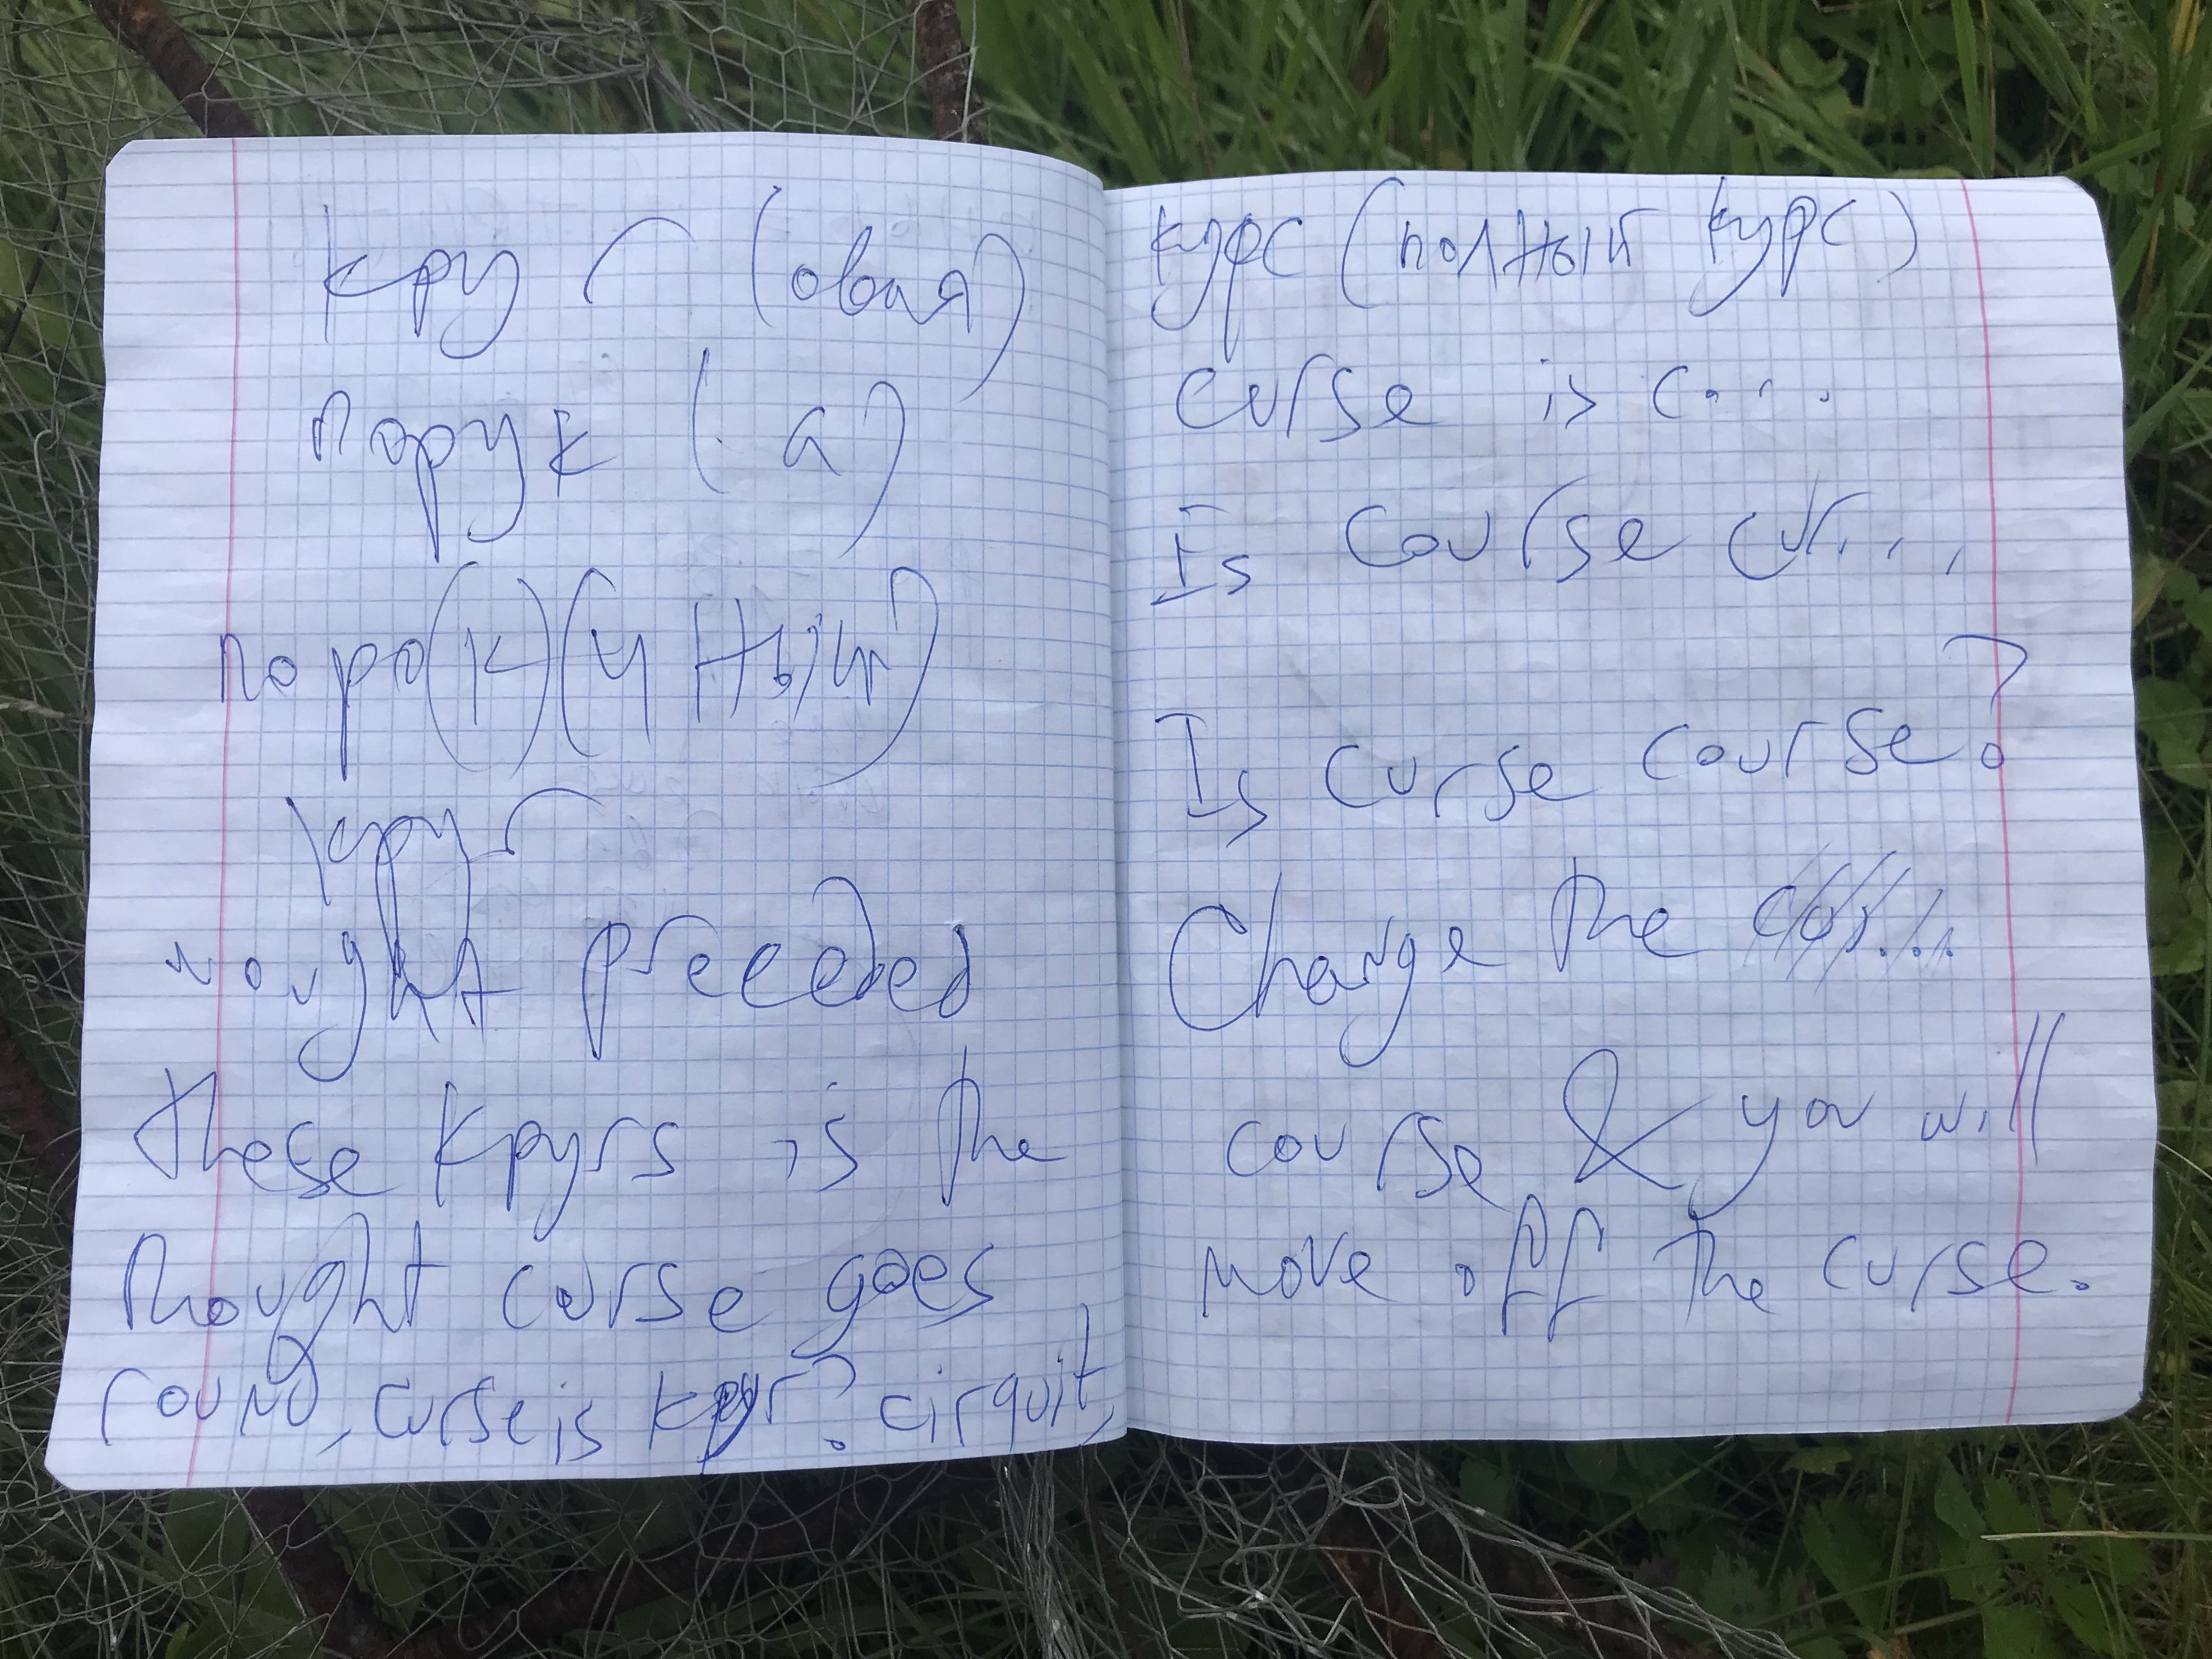 круг (овая)
порук (а)
поро(к)(чный)
круг
nought preceded
these кругs is the
thought curse goes
round, curse is круг? cirquit,
курс (полный курс)
curse is c....
Is course cur....
Is curse course?
Change the cur....
course & you will
move off the curse.